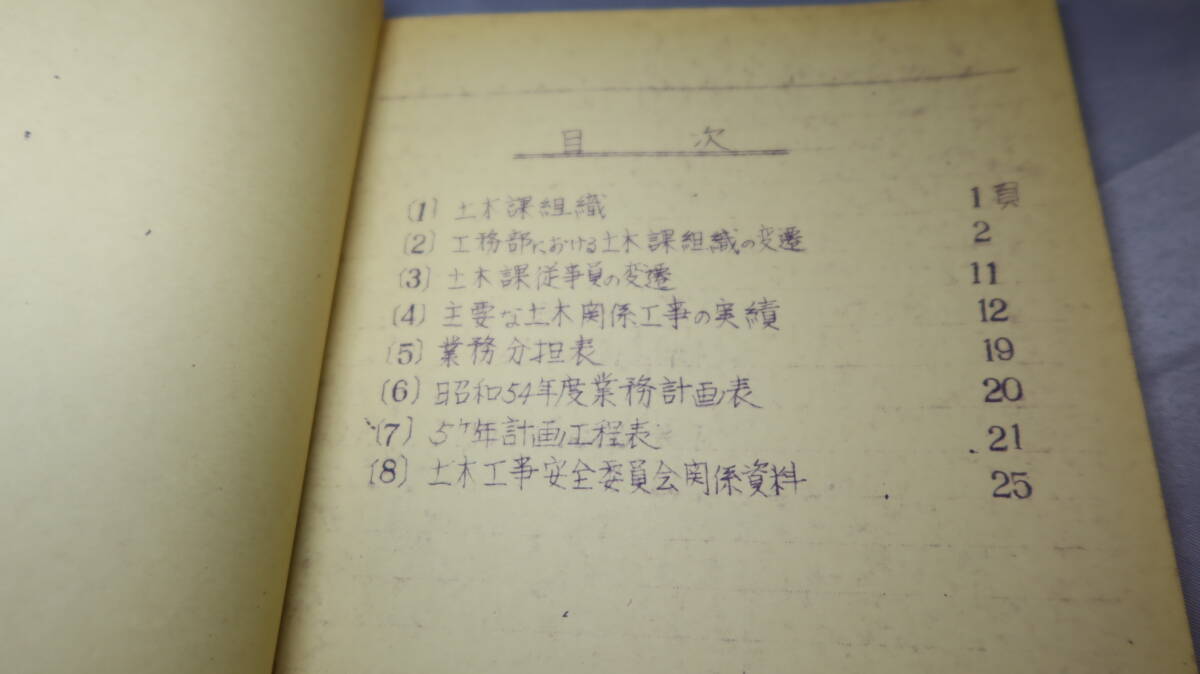 目 次
(1) 土木課組織 1頁
(2) 工務部における土木課組織の変遷 2
(3) 土木課従事員の変遷 11
(4) 主要な土木関係工事の実績 12
(5) 業務分担表 19
(6) 昭和54年度業務計画表 20
(7) 年計画工程表 21
(8) 土木工事安全委員会関係資料 25